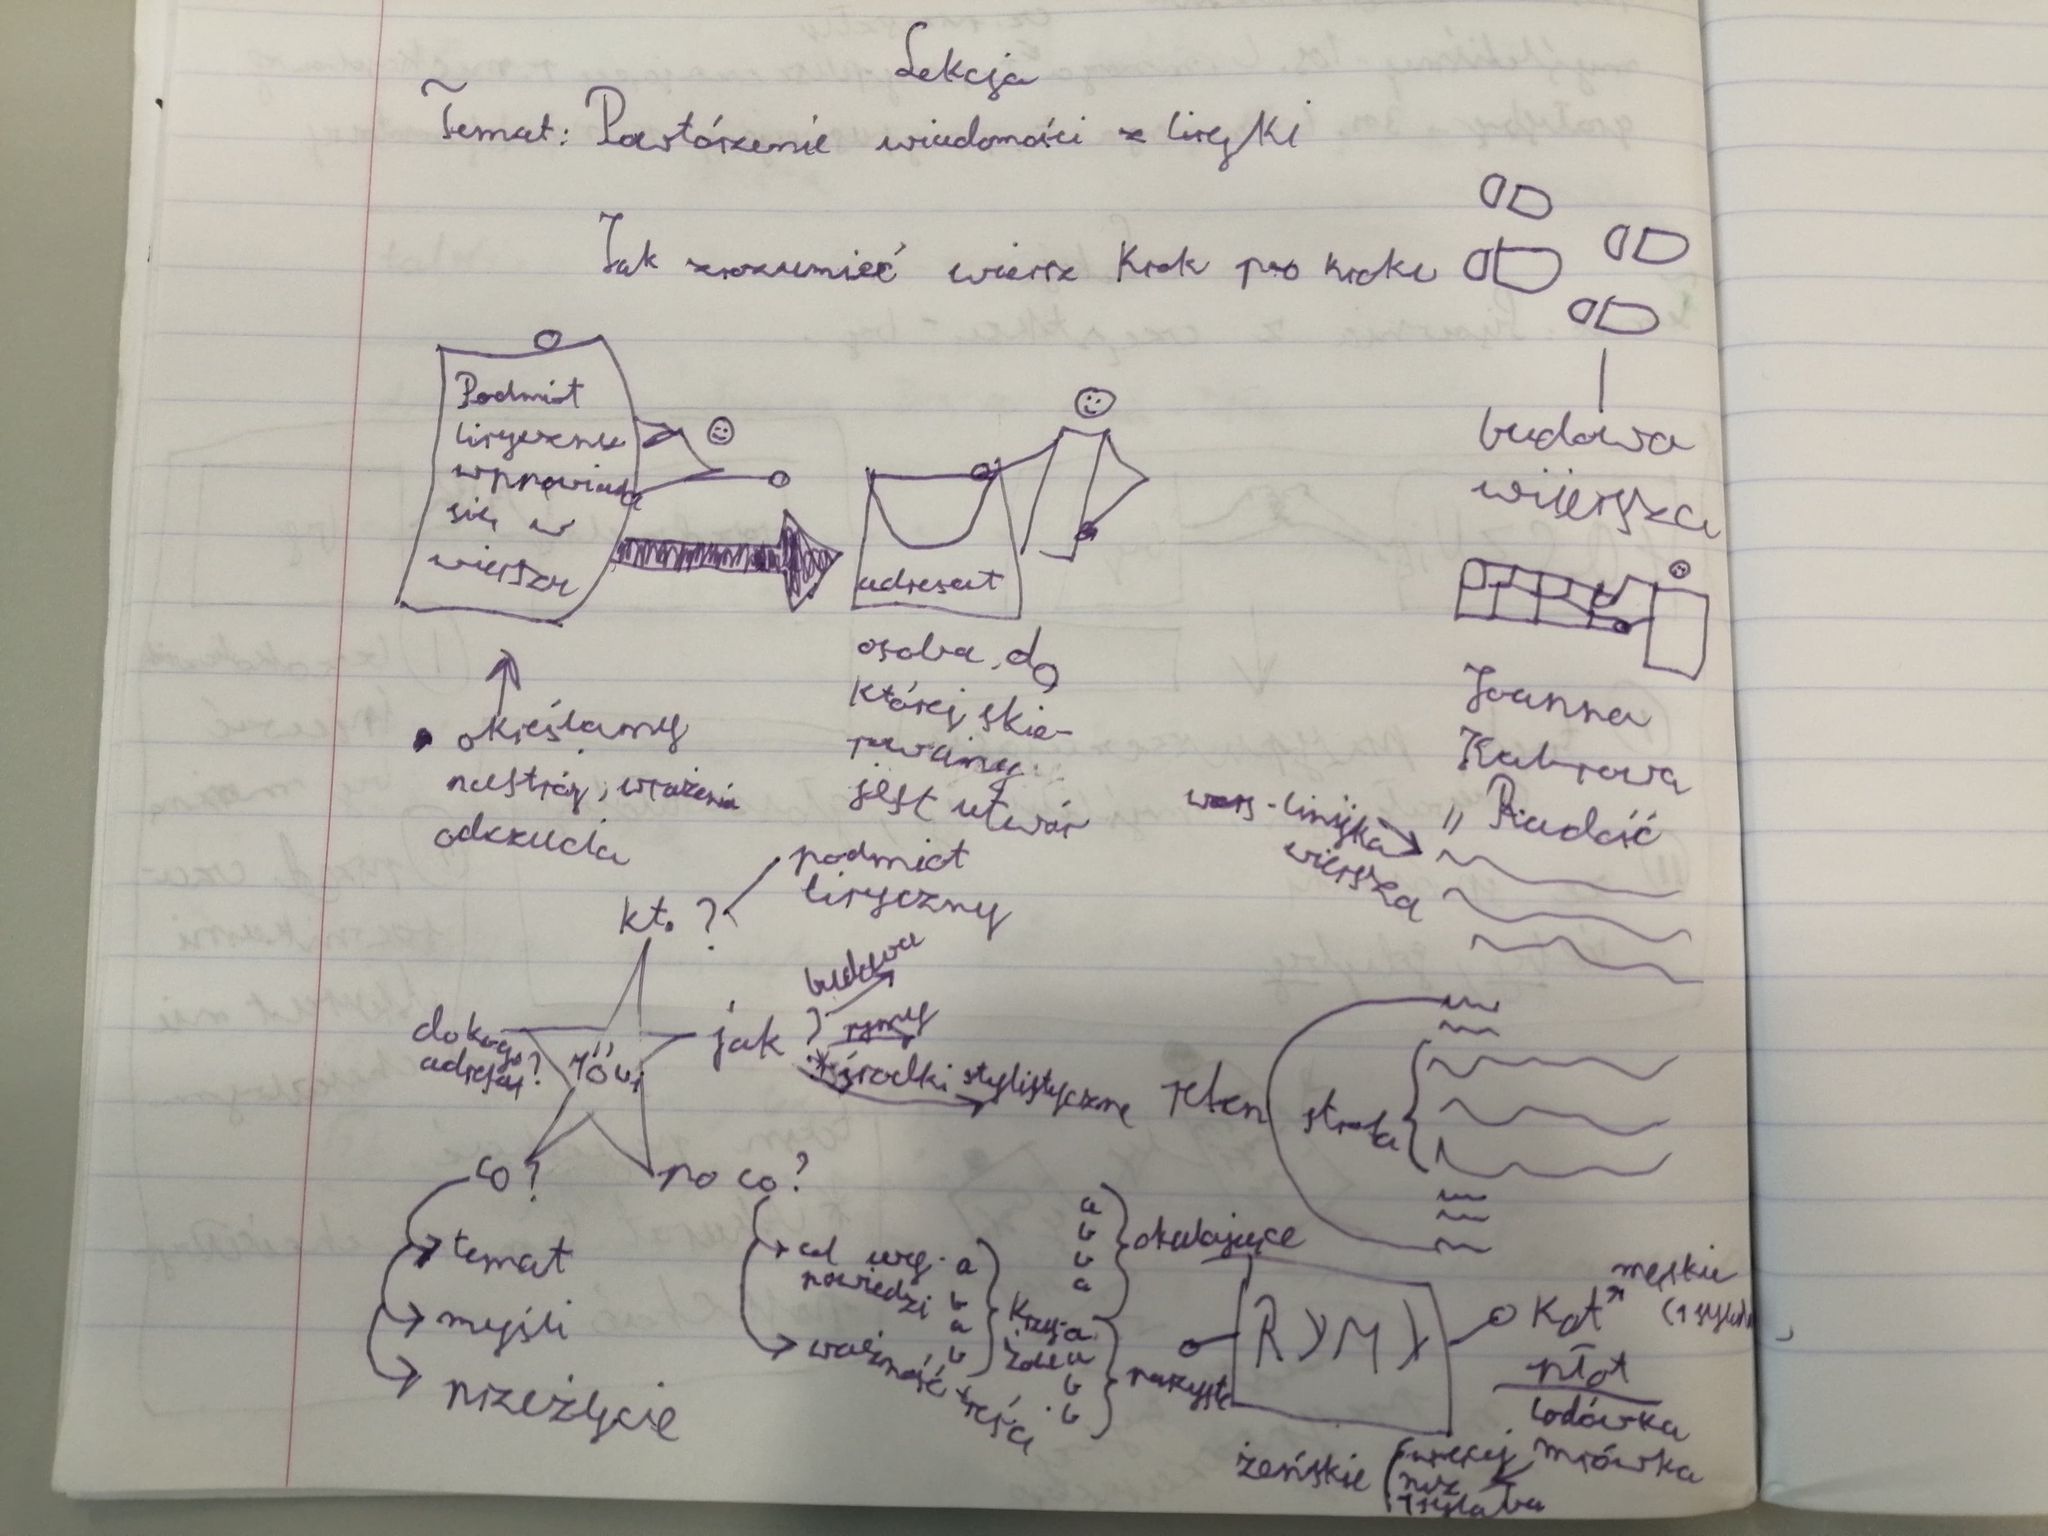 Lekcja
Temat: Powtórzenie wiadomości z liryki
Jak zrozumieć wiersz krok po kroku
Podmiot
liryczny
wypowiada
się w
wierszu
adresat
budowa
wiersza
określamy
nastrój, wrażenia
odczucia
osoba, do
której skie-
rowany
jest utwór
Joanna
Kulmowa
"Radość
wers - linijka
wiersza
kto?
podmiot
liryczny
jak?
budowa
rymy
środki stylistyczne
do kogo
adresat?
mówi
co?
po co?
temat
myśli
przeżycie
cel wy-
powiedzi
ważność treści
refren
strofa
a
b
b
a
okalające
a
b
a
b
krzy-
żowe
a
a
b
b
parzyste
RYMY
kot
płot
męskie
(1 sylaba
lodówka
mrówka
żeńskie
(więcej
niż
1 sylaba